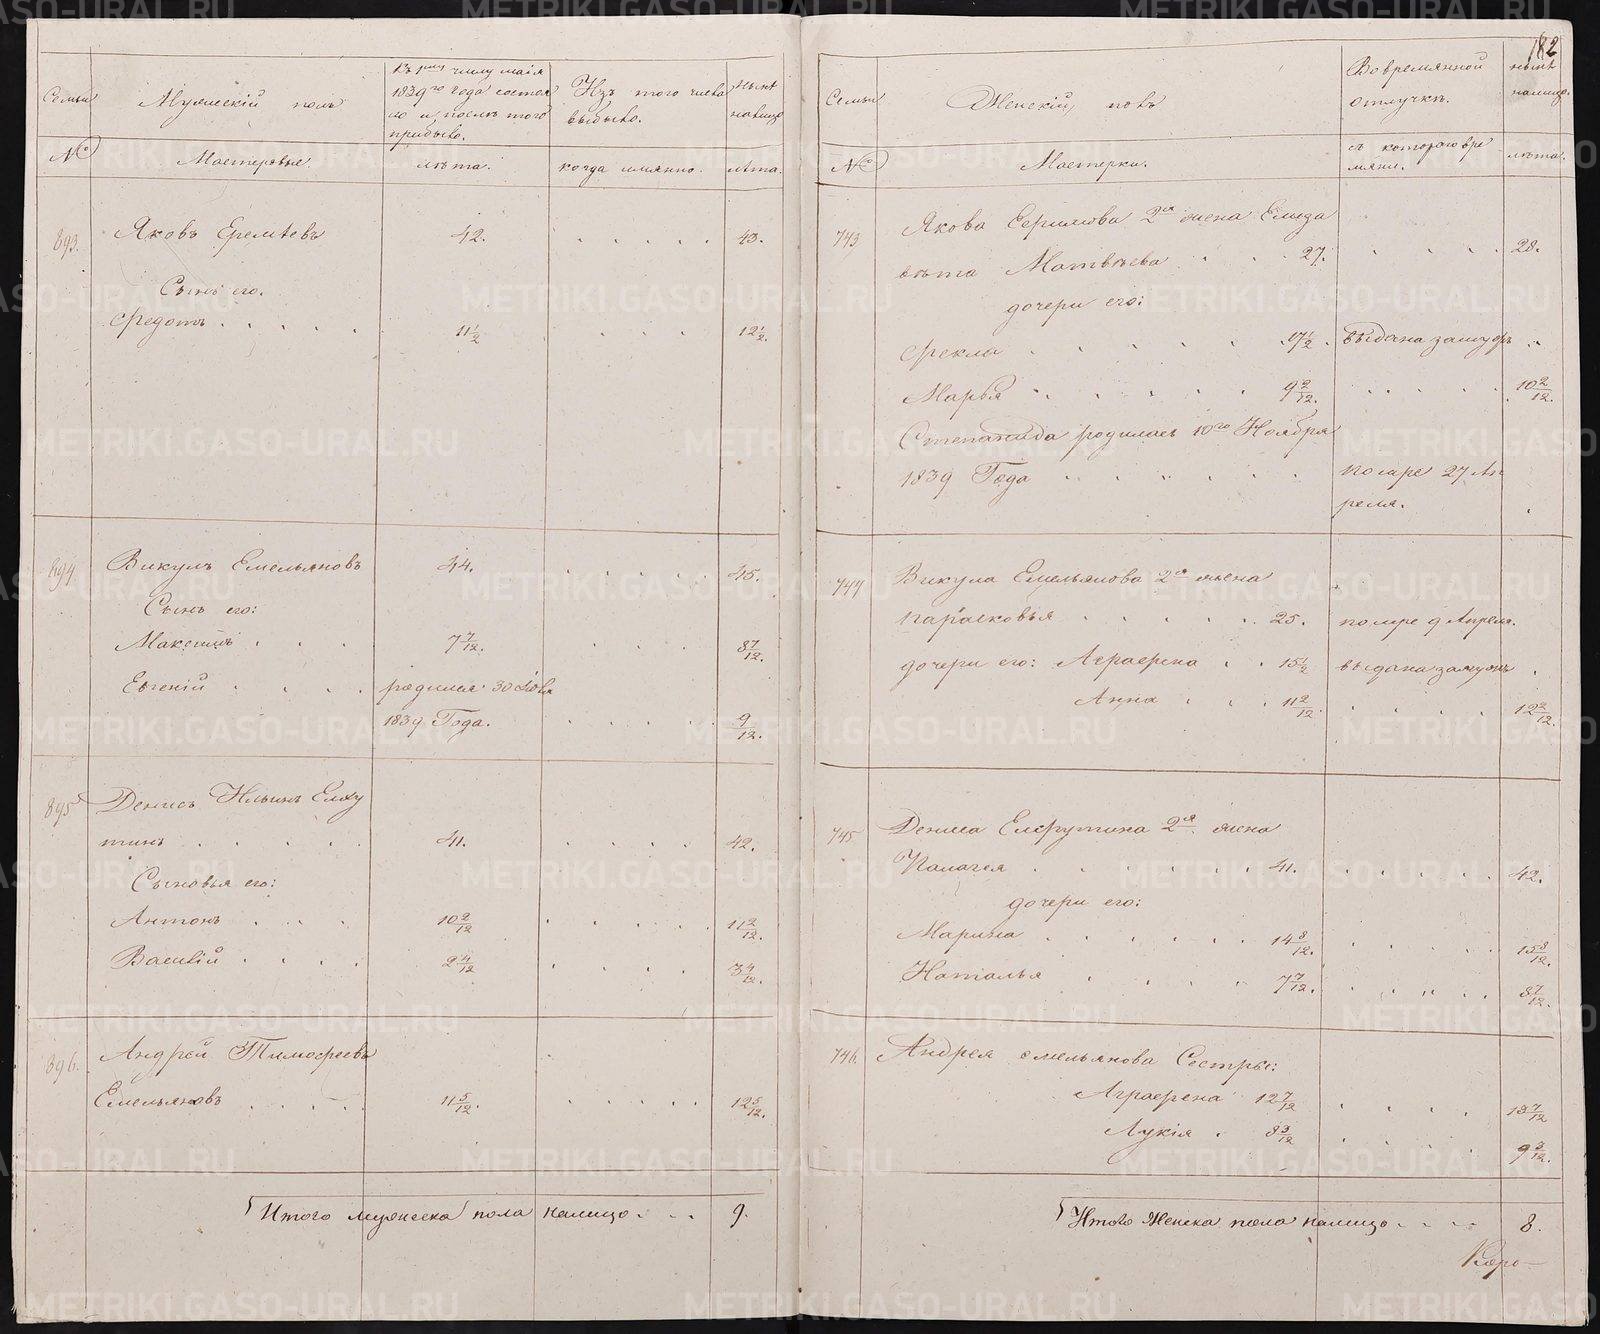 182
Семьи
Мужескій полъ
Къ 1му числу маія
1839го года состоя
ло и послѣ того
прибыло.
Изъ того числа
выбыло.
Нынѣ
налицо
№
Мастеровые
лѣта.
когда имянно.
лѣта.
893.
Яковъ Еремѣевъ
42.
43.
Сынъ его.
Ѳедотъ
11 1/2
12 1/2.
894
Викулъ Емельяновъ
44.
45.
Сынъ его:
Максимъ
7 7/12.
8 7/12.
Евгеній
родился 30
1839 Года.
9/12.
895
Денисъ Ильинъ Елху
тинъ
41.
42.
Сыновья его:
Антонъ
10 2/12
11 2/12.
Василій
2 4/12
3 4/12.
896.
Андрей Тимофеевъ
Емельяновъ
11 5/12.
12 5/12.
Итого мужеска пола налицо
9.
Семьи
Женскій полъ
Во времянной
отлучкѣ.
нынѣ
налицо.
№
Мастерки.
съ котораго вре
мяни.
лѣта.
743
Якова 2я жена Елиза
вѣта Матвѣева 27.
28.
дочери его:
Ѳекла 17 1/2. выдана замужъ
Марья 9 2/12.
10 2/12.
Степанида родилась 10го Ноября
1839 Года
помре 27 Ап
реля.
744
Викула Емельянова 2я жена
Парасковья 25. помре 9 Апреля.
дочери его: Аграфена 15 1/2 выдана замужъ
Анна 11 2/12.
12 2/12.
745
Дениса Елхутина 2я жена
Палагея 41.
42.
дочери его:
Марина 14 8/12.
15 8/12.
Наталья 7 7/12.
8 7/12.
746.
Андрея Емельянова Сестры:
Аграфена 12 7/12
13 7/12
Лукія 8 3/12
9 3/12.
Итого Женска пола налицо
8.
Коро-
METRIKI.GASO-URAL.RU